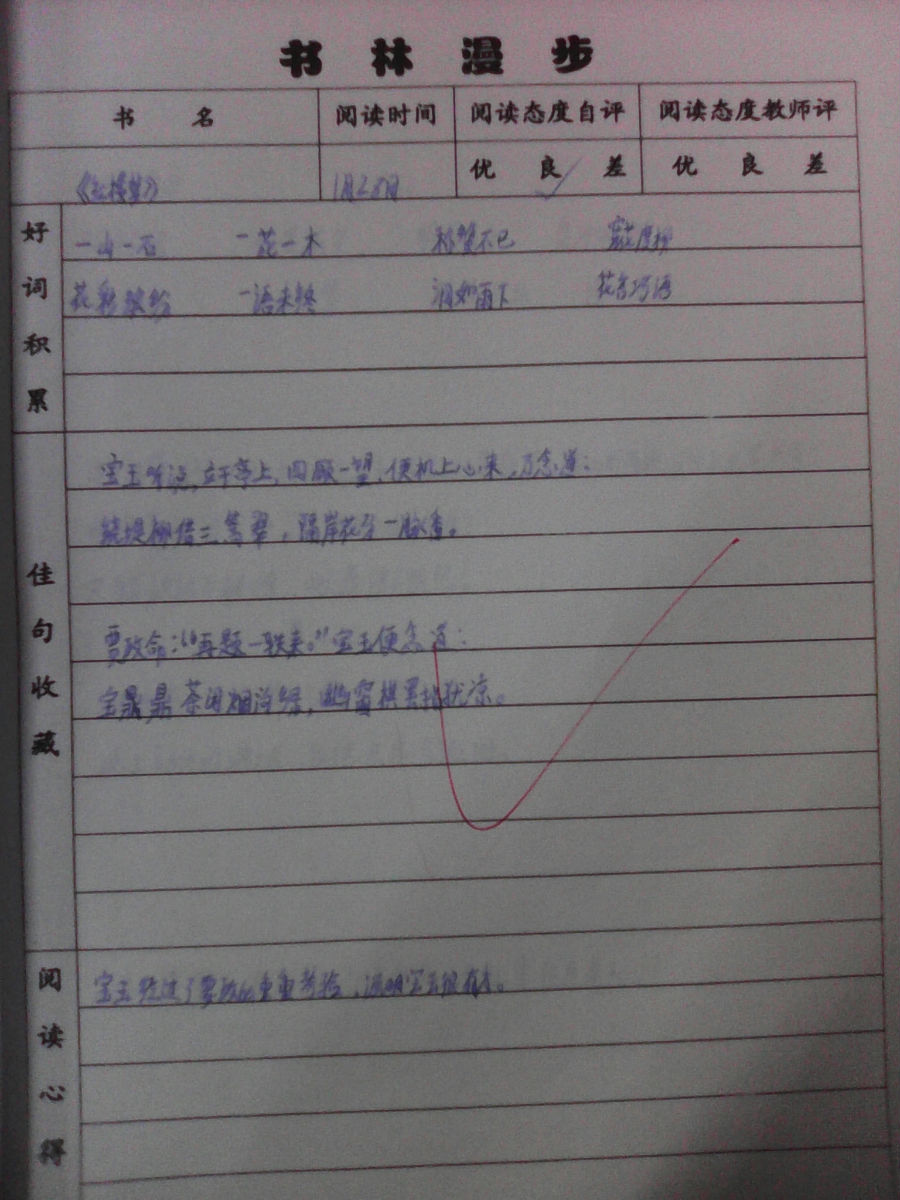 书林漫步
书名 阅读时间 阅读态度自评 阅读态度教师评
优 良 差 优 良 差
《红楼梦》 1月28日
好词积累
一山一石 一花一木 称赞不已 穿花度柳
花彩缤纷 一语未终 泪如雨下 花言巧语
佳句收藏
宝玉听说,立于亭上,四顾一望,便机上心来,乃念道:
绕堤柳借三篙翠,隔岸花分一脉香。
贾政命:“再题一联来。”宝玉便念道:
宝鼎茶闲烟尚绿,幽窗棋罢指犹凉。
阅读心得
宝玉经过了贾政的重重考验,说明宝玉很有才。